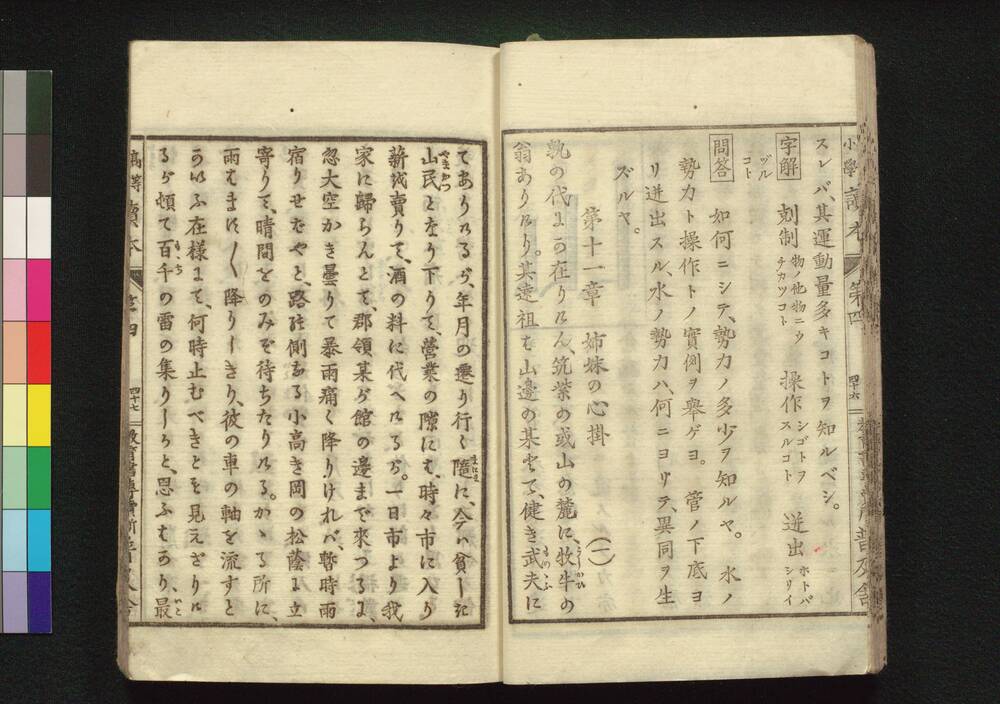 小學讀本
第四
四十六
普及舍
スレバ、其運動量多キコトヲ知ルベシ。
字解 剋制 物ノ他物ニウチカツコト 操作 シゴトヲスルコト 迸出 ホトバシリイヅルコト
問答 如何ニシテ、勢力ノ多少ヲ知ルヤ。 水ノ
勢力ト操作トノ實例ヲ舉ゲヨ。 管ノ下底ヨ
リ迸出スル、水ノ勢力ハ、何ニヨリテ、異同ヲ生
ズルヤ。
第十一章 姉妹の心掛 (一)
孰の代よか在りけん筑紫の或山の麓に、牧牛の
翁ありけり。其遠祖も山邊の某とて、健き武夫に
てありけるが、年月の遷り行く隨に、今ハ貧しき
山民となり下りて、營業の隙にも、時々市に入り
薪を賣りて、酒の料に代へけるが。一日市より我
家に歸らんとて、郡領某が館の邊まで來つるよ、
忽大空かき曇りて暴雨痛く降りけれバ、暫時雨
宿りせむやと、路の側なる小高き岡の松蔭に立
寄りて、晴間をのみぞ待ちたりける。かゝる所に、
雨もまに〳〵降りしきり、彼の車の軸を流すと
かいふ在様にて、何時止むべきとも見えざりけ
るが頓て百千の雷の集りしかと、思ふもあり、最
高等讀本
卷四
四十七